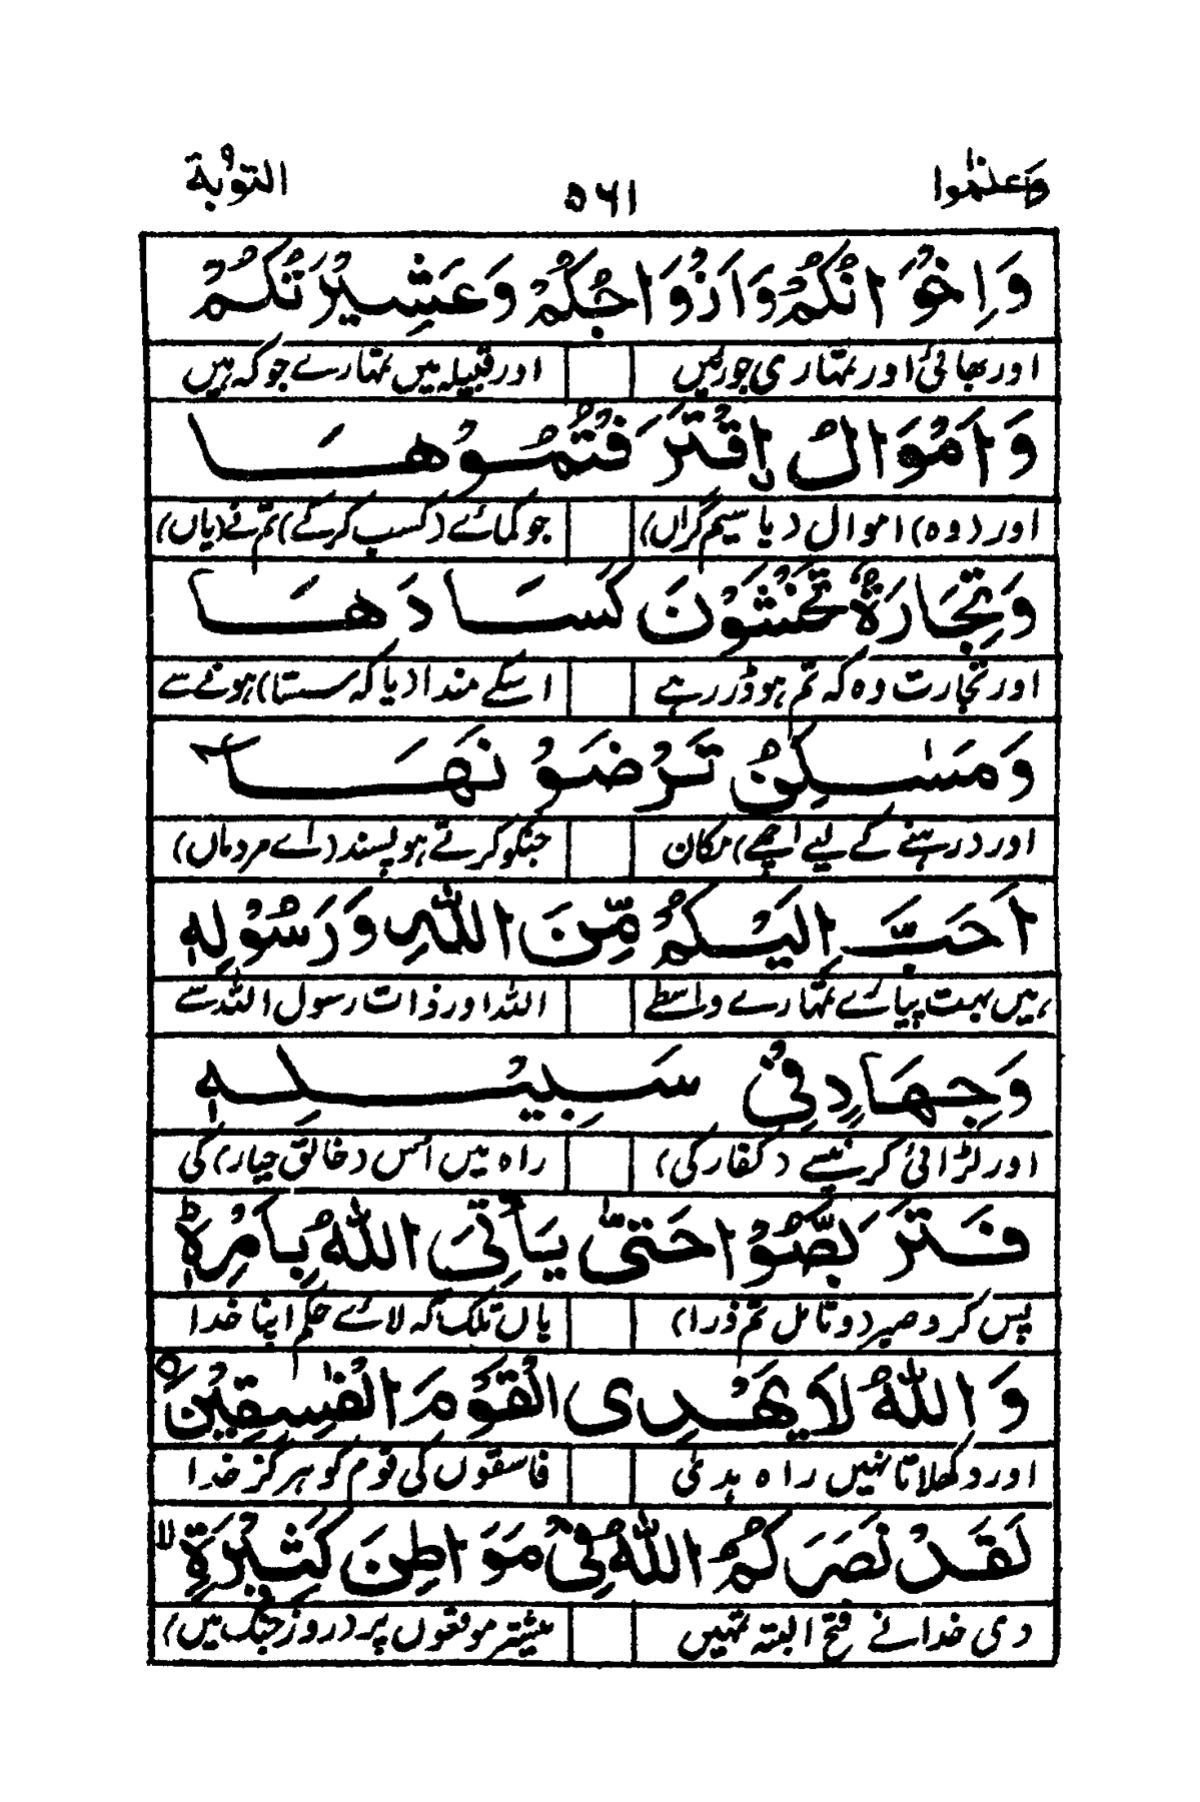 واعلموا ۵۶۱ التوبة ۹
وَاِخْوَانُكُمْ وَاَزْوَاجُكُمْ وَعَشِيْرَتُكُمْ
اور بھائی اور تمہاری جورئیں اور قبیلہ ہیں تمہارے جو کہ ہیں
وَاَمْوَالُ اِقْتَرَفْتُمُوْهَا
اور (وہ) اموال (یا سیم گراں) جو کمائے (کسب کر کے) تم نے (یاں)
وَتِجَارَةٌ تَخْشَوْنَ كَسَادَهَا
اور تجارت وہ کہ تم ہو ڈر رہے اسکے مندا (یا کہ سستا) ہونے سے
وَمَسٰكِنُ تَرْضَوْنَهَا
اور (رہنے کے لیے اچھے) مکان جنکو کرتے ہو پسند (اے مردماں)
اَحَبَّ اِلَيْكُمْ مِّنَ اللّٰهِ وَرَسُوْلِهٖ
ہیں بہت پیارے تمہارے واسطے اللہ اور ذات رسول اللہ سے
وَجِهَادٍ فِيْ سَبِيْلِهٖ
اور لڑائی کرنیسے (کفار کی) راہ میں اس (خالق جبار) کی
فَتَرَبَّصُوْا حَتّٰى يَاْتِىَ اللّٰهُ بِاَمْرِهٖ ؕ
پس کرو صبر (و تامل تم ذرا) یاں تلک کہ لائے حکم اپنا خدا
وَاللّٰهُ لَا يَهْدِى الْقَوْمَ الْفٰسِقِيْنَ ۝
اور دکھلاتا نہیں راہ ہدیٰ فاسقوں کی قوم کو ہرگز خدا
لَقَدْ نَصَرَكُمُ اللّٰهُ فِيْ مَوَاطِنَ كَثِيْرَةٍ ۙ
دی خدا نے فتح البتہ تمہیں بیشتر موقعوں پر (روز جنگ میں)